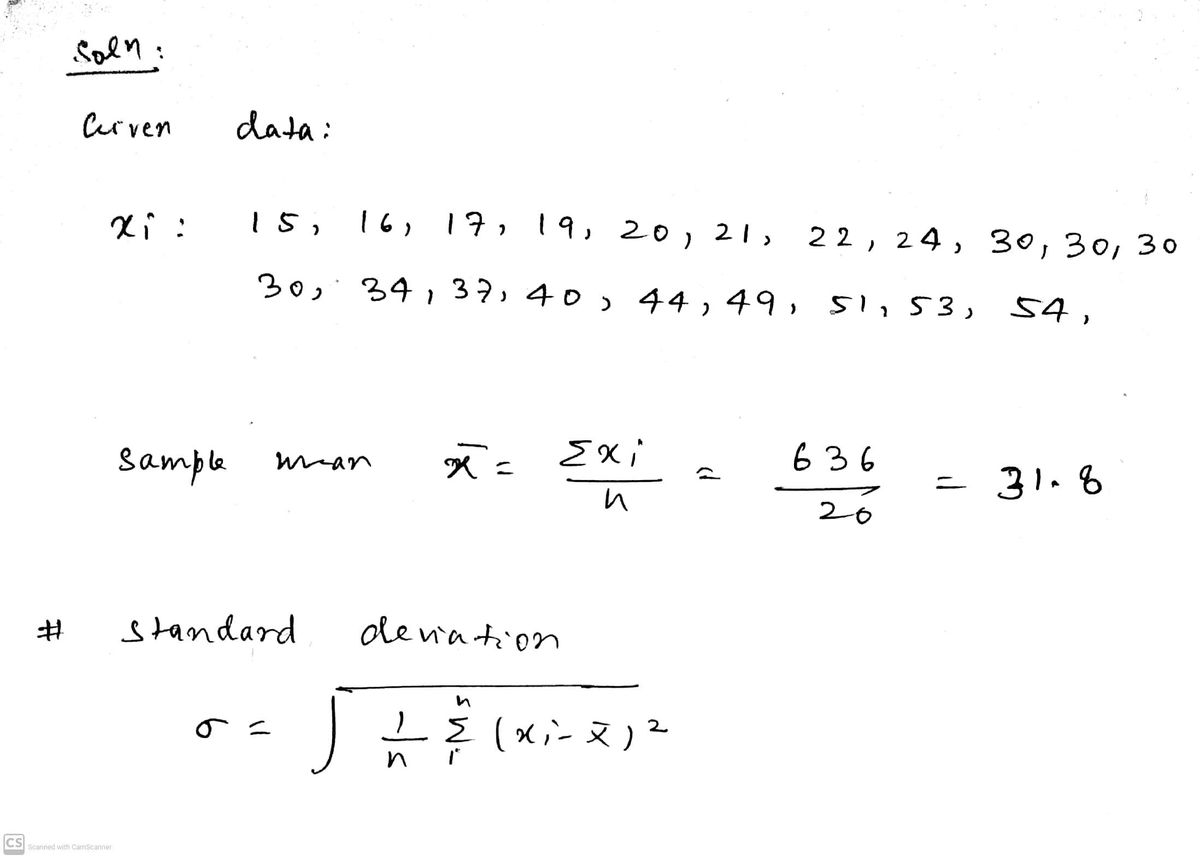 Soln :
Given data :
xi : 15, 16, 17, 19, 20, 21, 22, 24, 30, 30, 30
30, 34, 37, 40, 44, 49, 51, 53, 54,
Sample mean x̄ = Σxi / n = 636 / 20 = 31.8
# Standard deviation
σ = √( 1/n Σ_i^n (xi - x̄)² )
CS Scanned with CamScanner